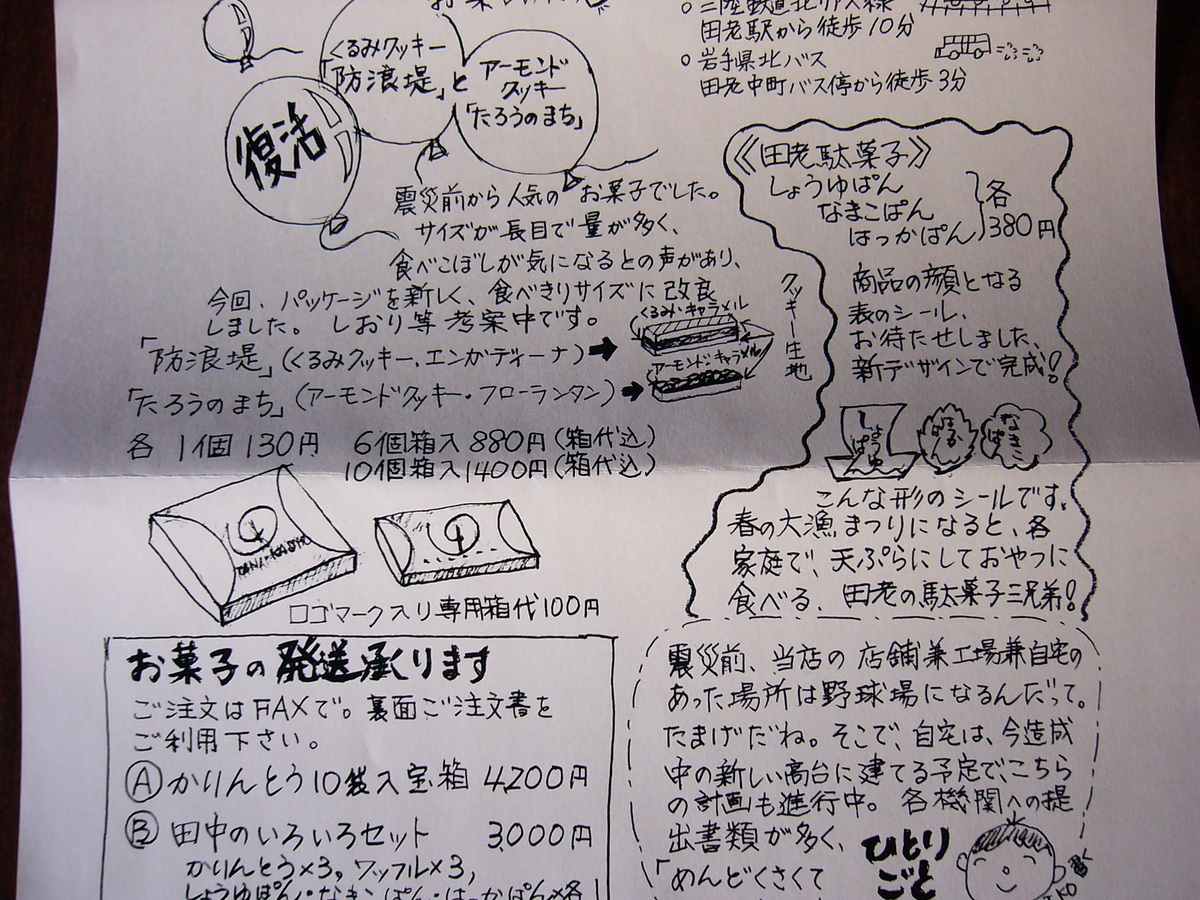 くるみクッキー
「防浪堤」と
アーモンド
クッキー
「たろうのまち」
復活!!
震災前から人気の お菓子でした。
サイズが長目で量が多く、
食べこぼしが気になるとの声があり、
今回、パッケージを新しく、食べきりサイズに改良
しました。 しおり等考案中です。
「防浪堤」(くるみクッキー、エンガディーナ)➡
くるみ・キャラメル
「たろうのまち」(アーモンドクッキー・フローランタン)➡
アーモンド・キャラメル
クッキー生地
各 1個 130円 6個箱入 880円(箱代込)
10個箱入 1400円(箱代込)
ロゴマーク入り専用箱代100円
お菓子の発送承ります
ご注文はFAXで。裏面ご注文書を
ご利用下さい。
Ⓐ かりんとう10袋入宝箱 4200円
Ⓑ 田中のいろいろセット 3,000円
かりんとう×3, ワッフル×3,
しょうゆぱん・なまこぱん・はっかぱん×各1
○三陸鉄道北リアス線
田老駅から徒歩10分
○岩手県北バス
田老中町バス停から徒歩3分
《田老駄菓子》
しょうゆぱん
なまこぱん
はっかぱん
各
380円
商品の顔となる
表のシール、
お待たせしました、
新デザインで完成!
しょうゆぱん
なまこぱん
こんな形のシールです。
春の大漁まつりになると、各
家庭で、天ぷらにしておやつに
食べる、田老の駄菓子三兄弟!
震災前、当店の店舗兼工場兼自宅の
あった場所は野球場になるんだって。
たまげだね。そこで、自宅は、今造成
中の新しい高台に建てる予定で、こちら
の計画も進行中。 各機関への提
出書類が多く、
「めんどくさくて
ひとり
ごと